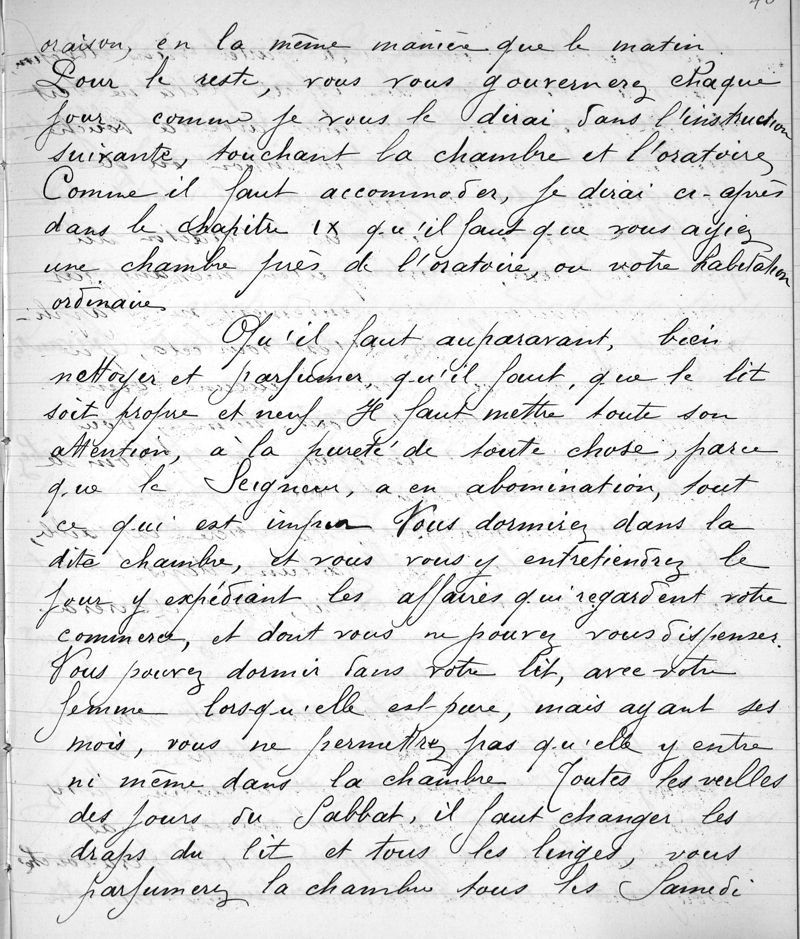 oraison, en la même manière que le matin.
Pour le reste, vous vous gouvernerez chaque
jour comme je vous le dirai dans l'instruction
suivante, touchant la chambre et l'oratoire,
Comme il faut accommoder, je dirai ci-après
dans le chapitre IX qu'il faut que vous ayiez
une chambre près de l'oratoire, ou votre habitation
ordinaire
Qu'il faut auparavant, bien
nettoyer et parfumer, qu'il faut, que le lit
soit propre et neuf. Il faut mettre toute son
attention, à la pureté de toute chose, parce
que le Seigneur, a en abomination, tout
ce qui est impur Vous dormirez dans la
dite chambre, et vous vous y entretiendrez le
jour y expédiant les affaires qui regardent votre
commerce, et dont vous ne pouvez vous dispenser.
Vous pouvez dormir dans votre lit, avec votre
femme lorsqu'elle est pure, mais ayant ses
mois, vous ne permettrez pas qu'elle y entre
ni même dans la chambre Toutes les veilles
des jours du Sabbat, il faut changer les
draps du lit et tous les linges, vous
parfumerez la chambre tous les Samedi